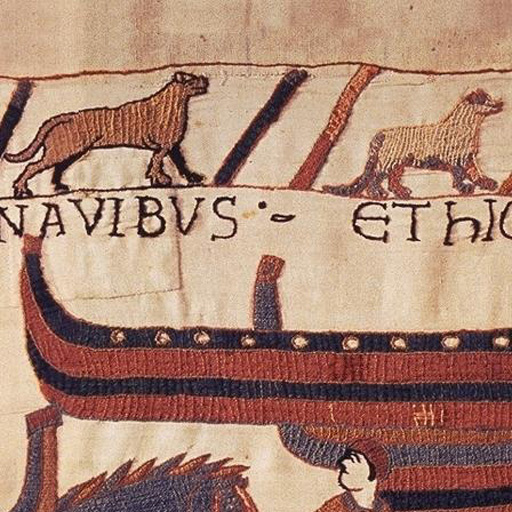 NAVIBVS :- ET hIC